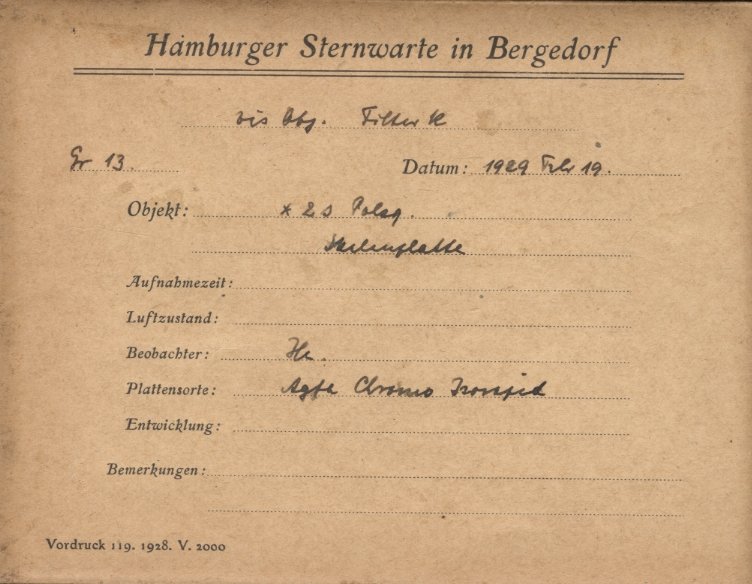 Hamburger Sternwarte in Bergedorf
vis Obj. Filter K
Gr 13. Datum: 1929 Febr 19.
Objekt: * 2s Polsq.
Skalenplatte
Aufnahmezeit:
Luftzustand:
Beobachter:
Plattensorte: Agfa Chromo Isorapid
Entwicklung:
Bemerkungen:
Vordruck 119. 1928. V. 2000